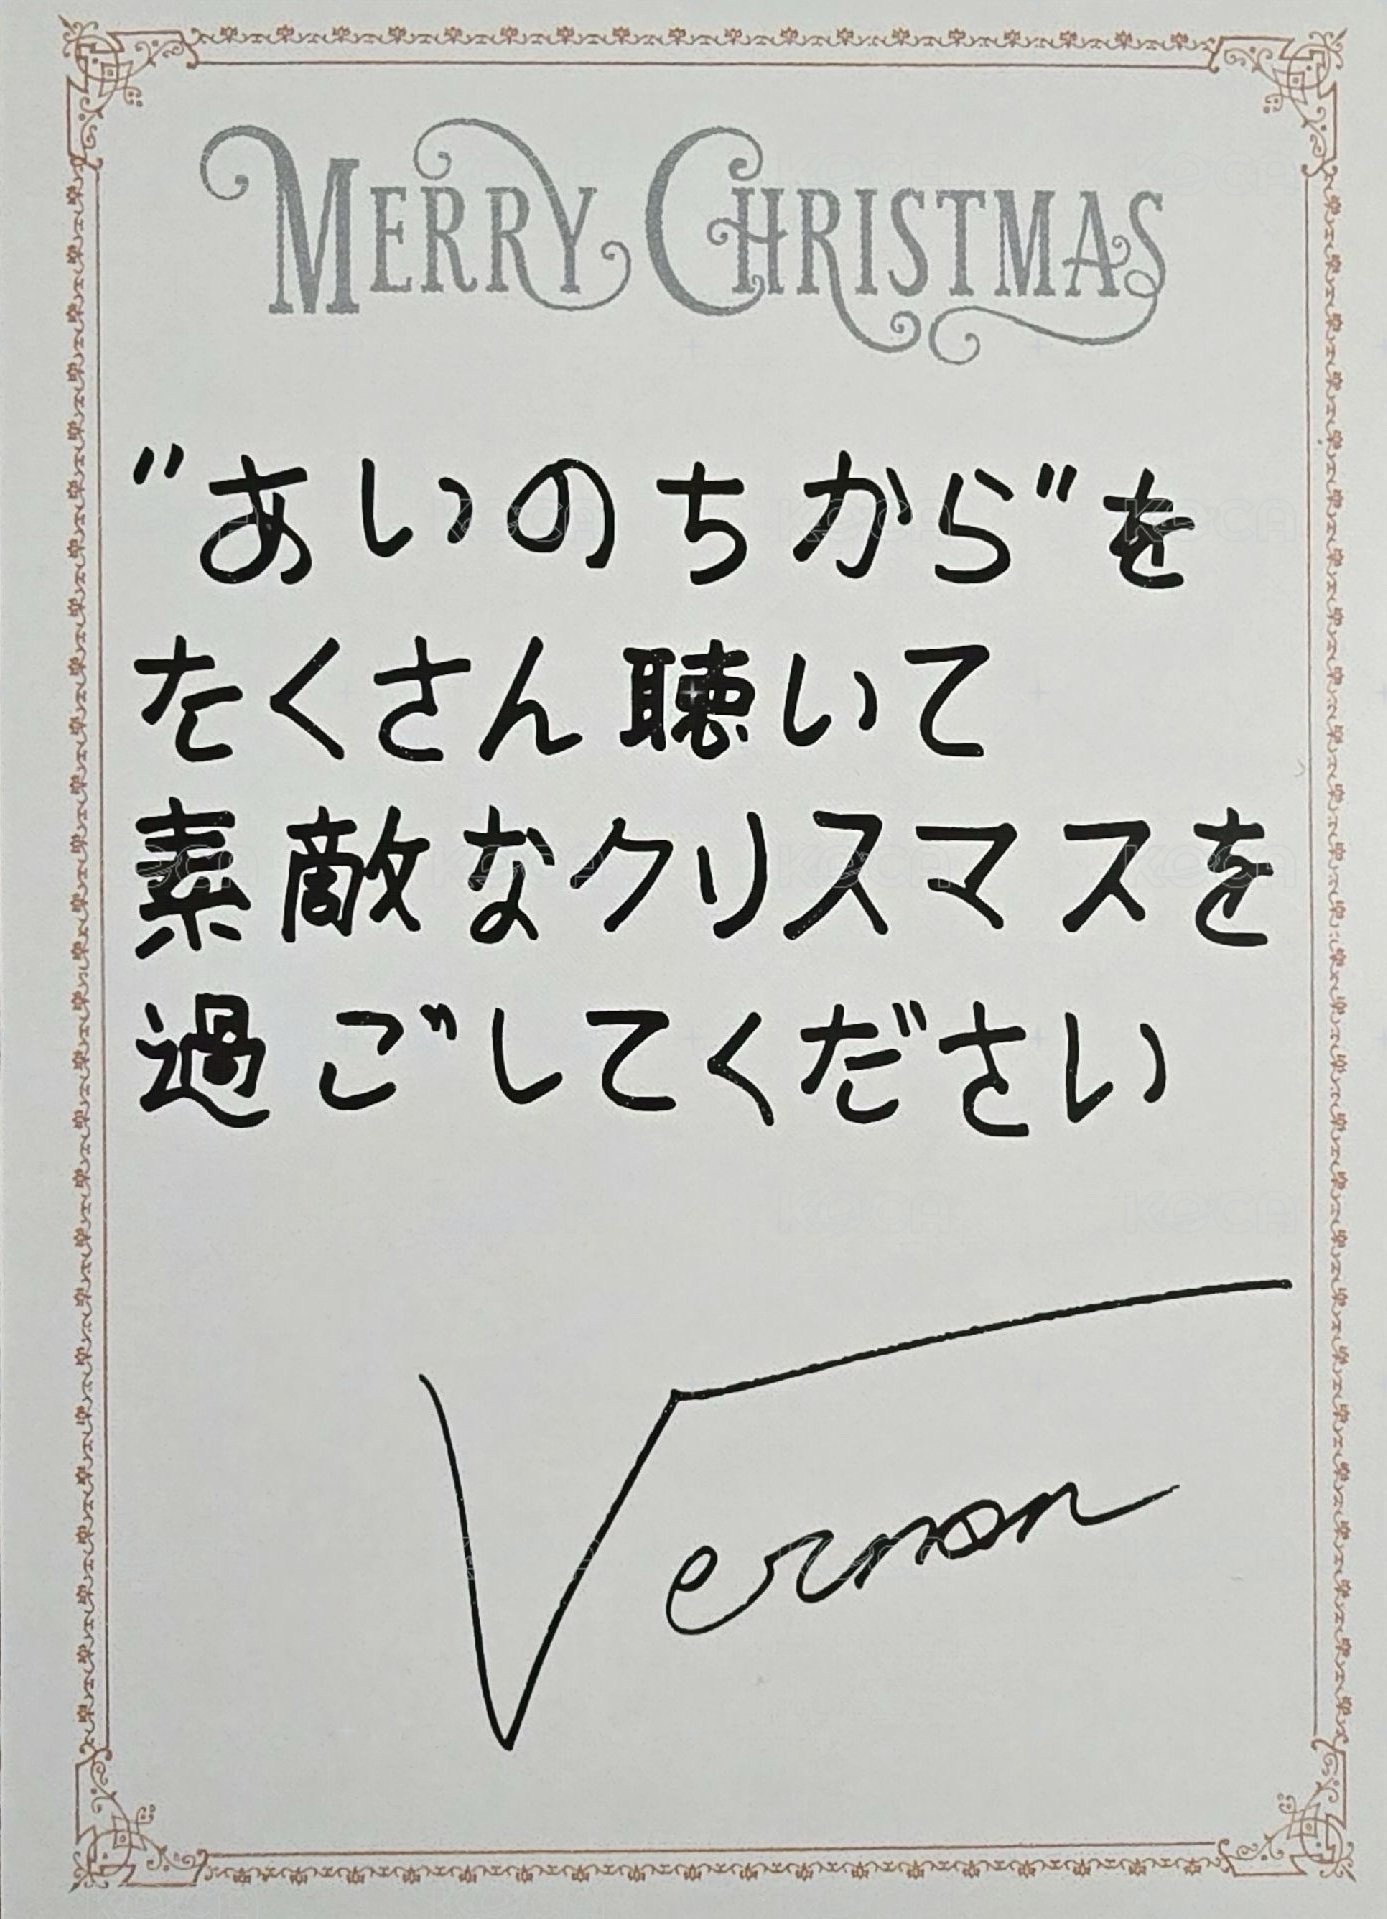 MERRY CHRISTMAS
"あいのちから"を
たくさん聴いて
素敵なクリスマスを
過ごしてください
Vernon